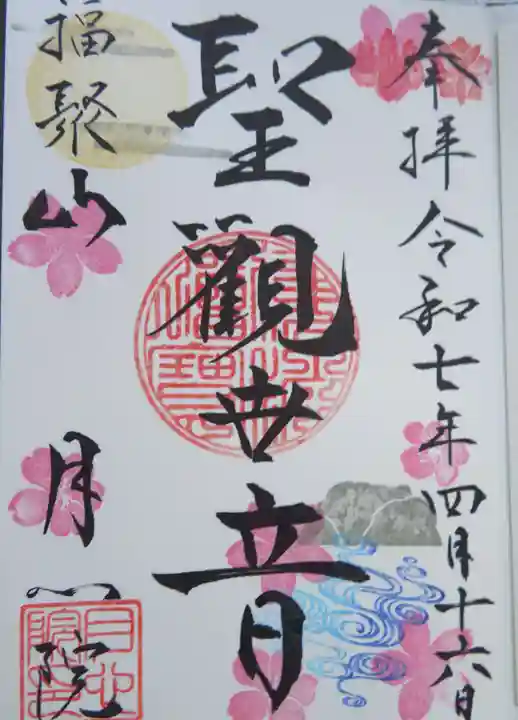 奉拝 令和七年四月十六日
聖觀世音
福聚山 月心院